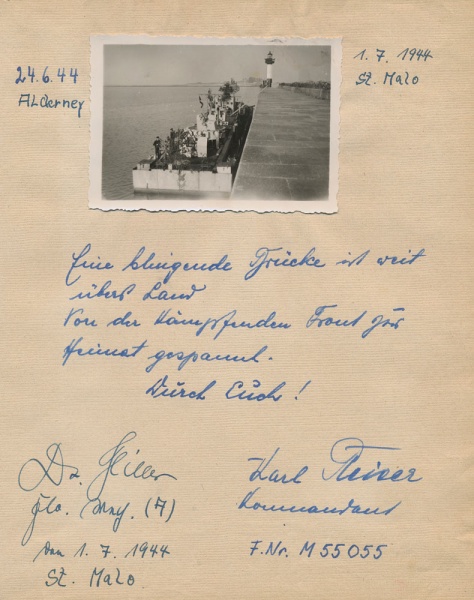 24.6.44
Alderney
1. 7. 1944
St. Malo
Eine klingende Brücke ist weit
übers Land
Von der kämpfenden Front zur
Heimat gespannt.
Durch Euch!
Dr.
(A)
den 1. 7. 1944
St. Malo
Karl
Kommandant
F.Nr. M 55055